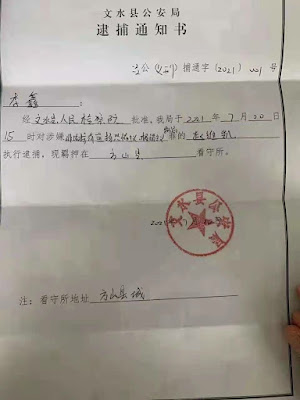 文水县公安局
逮捕通知书
文公(刑)捕通字〔2021〕001号
李鑫:
经文水县人民检察院批准,我局于2021年7月20日
15时对涉嫌
执行逮捕,现羁押在方山县看守所。
文水县公安局
注:看守所地址 方山县城